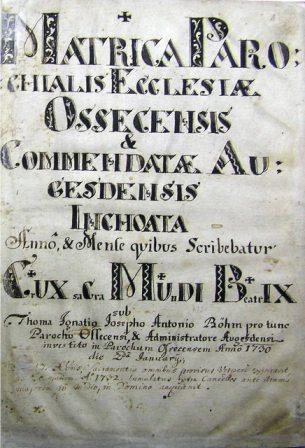 MATRICA PARO:
CHIALIS ECCLESIÆ
OSSECENSIS
&
COMMENDATÆ AU:
GESDENSIS
INCHOATA
Anno, & Mense quibus Scribebatur
CrUX saCra MUnDI BeateIX
sub
Thoma Ignatio Josepho Antonio Böhm pro tunc
Parocho Ossecensi, & Administratore Augesdensi
investito in Parochum Ossecensem Anno 1730
die Januarij
in Domino